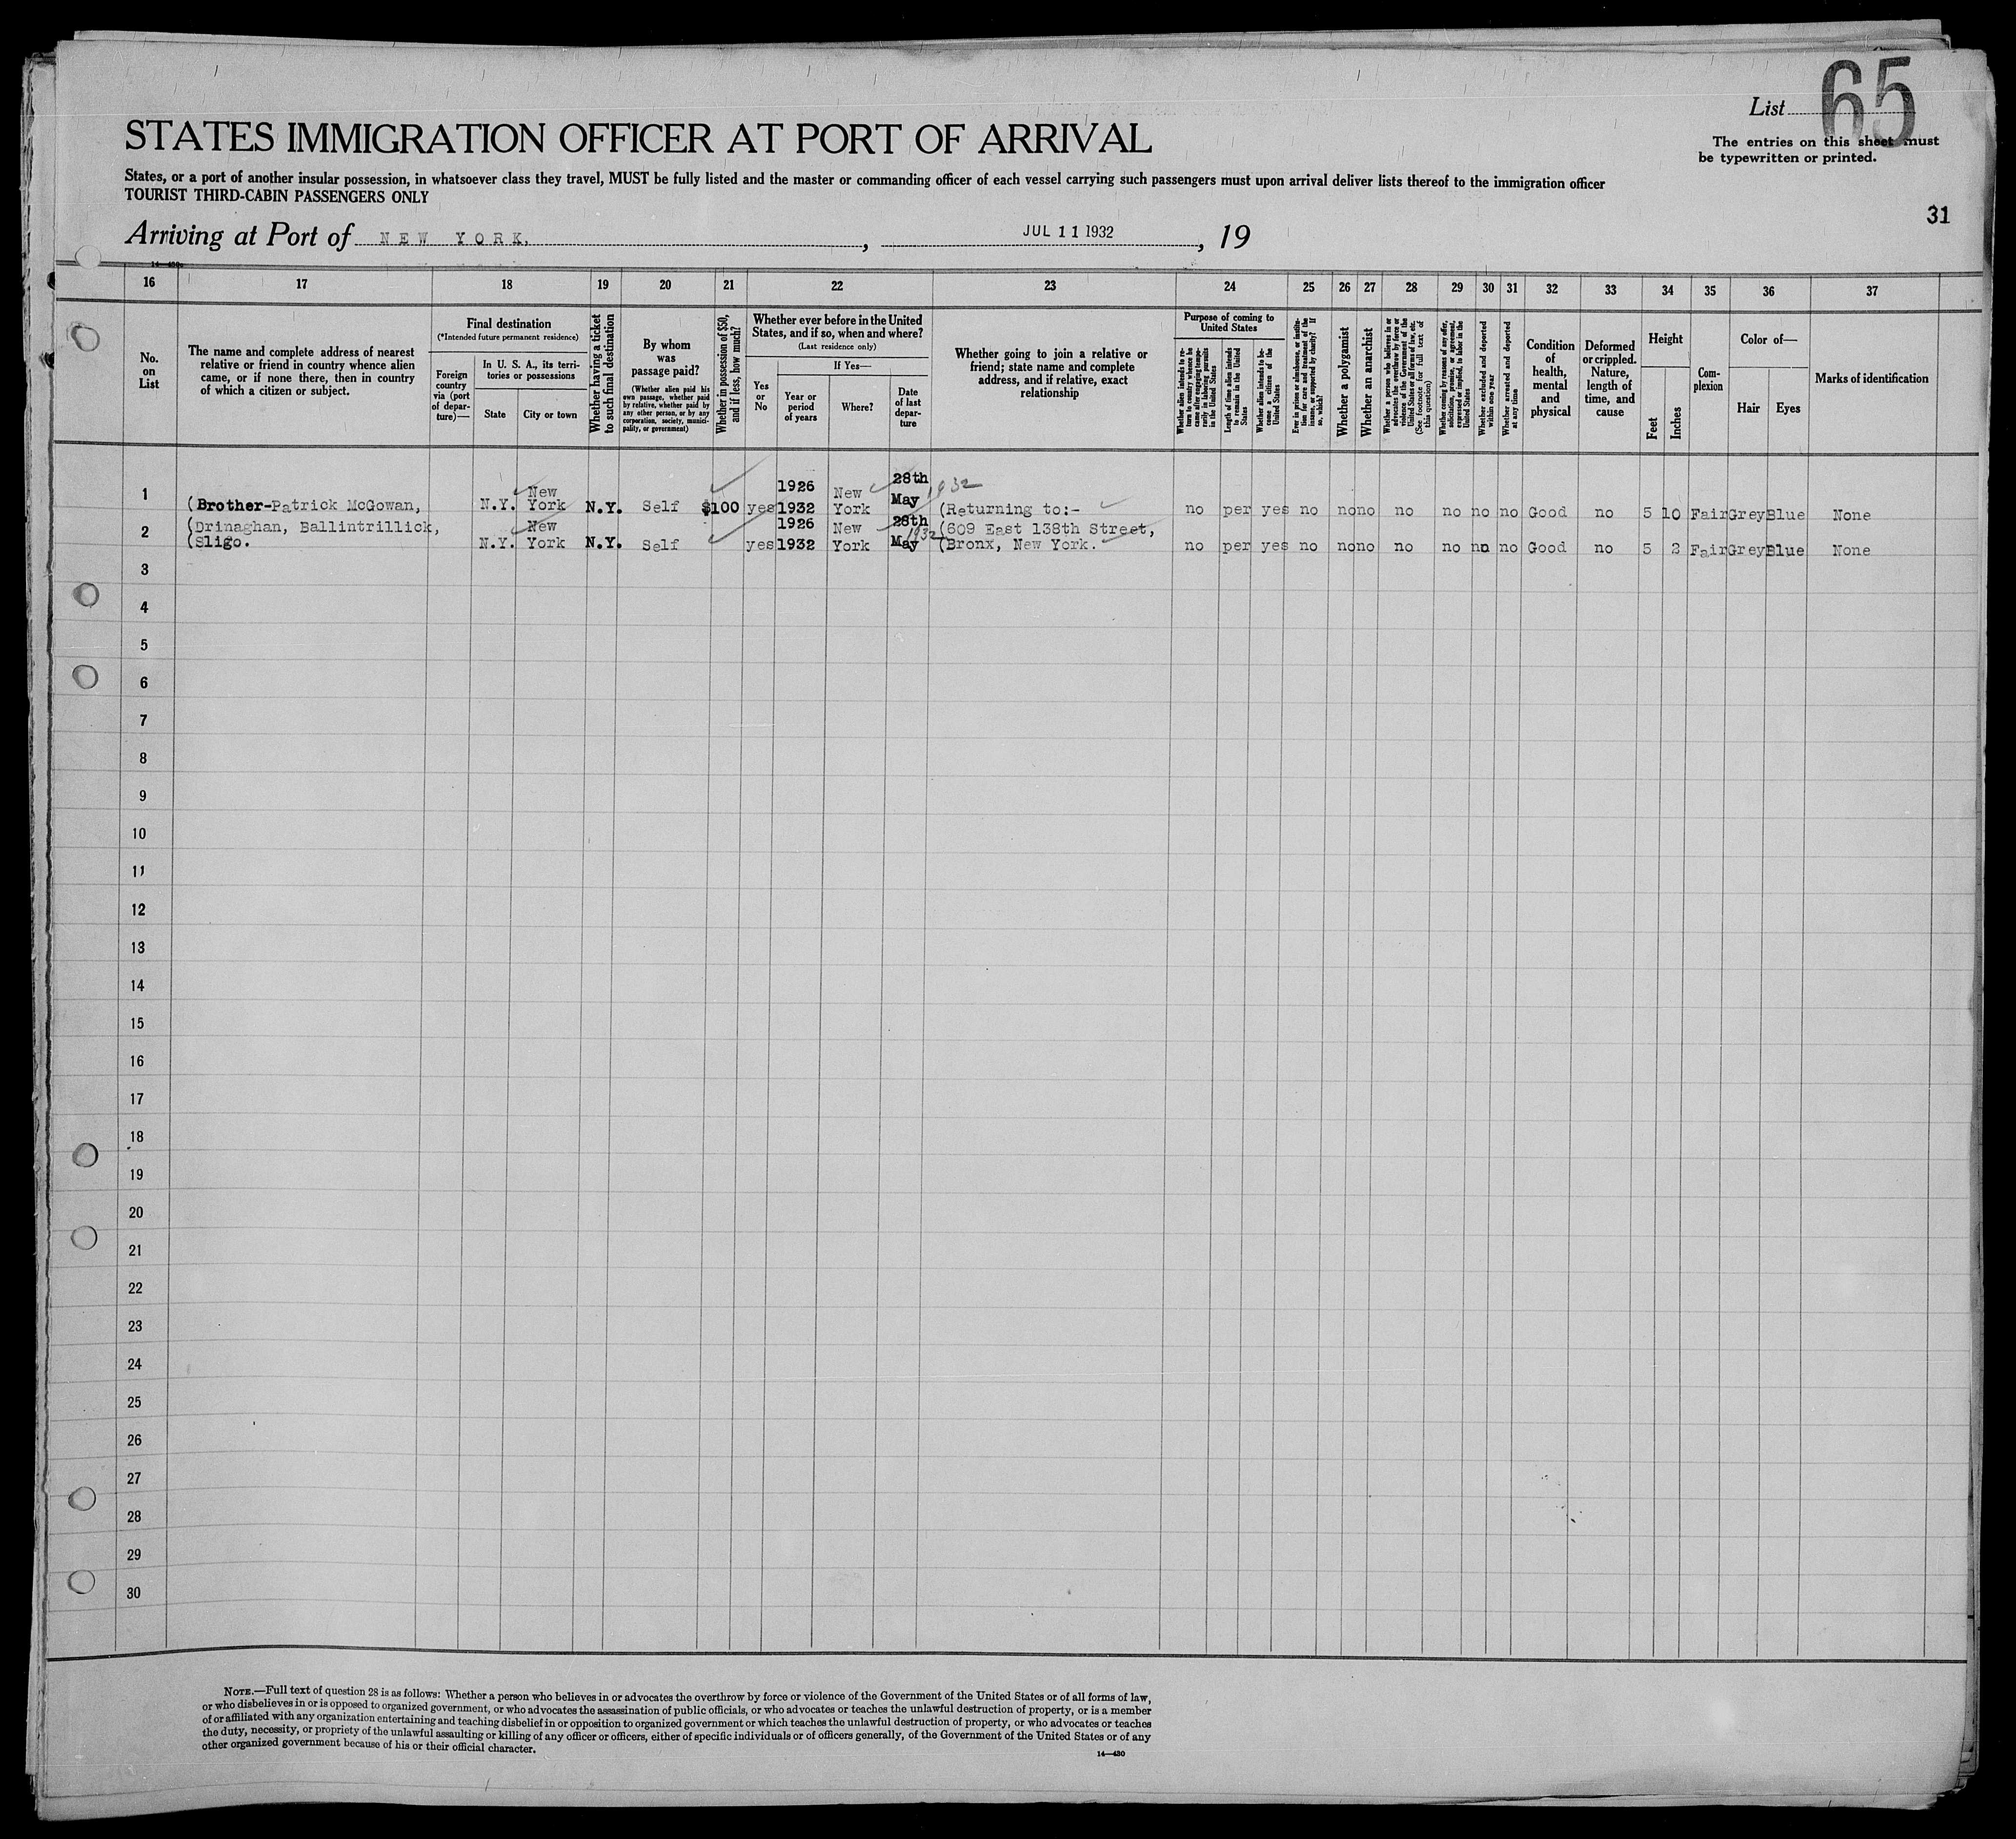 List 65
The entries on this sheet must
be typewritten or printed.
STATES IMMIGRATION OFFICER AT PORT OF ARRIVAL
States, or a port of another insular possession, in whatsoever class they travel, MUST be fully listed and the master or commanding officer of each vessel carrying such passengers must upon arrival deliver lists thereof to the immigration officer
TOURIST THIRD-CABIN PASSENGERS ONLY
31
Arriving at Port of NEW YORK. , JUL 11 1932 , 19
16 17 18 19 20 21 22 23 24 25 26 27 28 29 30 31 32 33 34 35 36 37
No.
on
List
The name and complete address of nearest
relative or friend in country whence alien
came, or if none there, then in country
of which a citizen or subject.
Final destination
(*Intended future permanent residence)
Foreign
country
via (port
of depar-
ture)—
In U. S. A., its terri-
tories or possessions
State
City or town
Whether having a ticket
to such final destination
By whom
was
passage paid?
(Whether alien paid his
own passage, whether paid
by relative, whether paid by
any other person, or by any
corporation, society, munici-
pality, or government)
Whether in possession of $50,
and if less, how much?
Whether ever before in the United
States, and if so, when and where?
(Last residence only)
Yes
or
No
If Yes—
Year or
period
of years
Where?
Date
of last
depar-
ture
Whether going to join a relative or
friend; state name and complete
address, and if relative, exact
relationship
Purpose of coming to
United States
Whether alien intends to re-
turn to country whence he
came after engaging tempo-
rarily in laboring pursuits
in the United States
Length of time alien intends
to remain in the United
States
Whether alien intends to be-
come a citizen of the
United States
Ever in prison or almshouse, or institu-
tion for care and treatment of the
insane, or supported by charity? If
so, which?
Whether a polygamist
Whether an anarchist
Whether a person who believes in or
advocates the overthrow by force or
violence of the Government of the
United States or all forms of law, etc.
(See footnote for full text of
this question)
Whether coming by reasons of any offer,
solicitation, promise, or agreement,
expressed or implied, to labor in the
United States
Whether excluded and deported
within one year
Whether arrested and deported
at any time
Condition
of
health,
mental
and
physical
Deformed
or crippled.
Nature,
length of
time, and
cause
Height
Feet
Inches
Com-
plexion
Color of—
Hair
Eyes
Marks of identification
1 New 1926 New 28th 1932
(Brother-Patrick McGowan, N.Y. York N.Y. Self $100 yes 1932 York May (Returning to:- no per yes no no no no no no no Good no 5 10 Fair Grey Blue None
2 (Drinaghan, Ballintrillick, New 1926 New 28th 1932 (609 East 138th Street,
(Sligo. N.Y. York N.Y. Self yes 1932 York May (Bronx, New York. no per yes no no no no no no no Good no 5 2 Fair Grey Blue None
3
4
5
6
7
8
9
10
11
12
13
14
15
16
17
18
19
20
21
22
23
24
25
26
27
28
29
30
NOTE.—Full text of question 28 is as follows: Whether a person who believes in or advocates the overthrow by force or violence of the Government of the United States or of all forms of law,
or who disbelieves in or is opposed to organized government, or who advocates the assassination of public officials, or who advocates or teaches the unlawful destruction of property, or is a member
of or affiliated with any organization entertaining and teaching disbelief in or opposition to organized government or which teaches the unlawful destruction of property, or who advocates or teaches
the duty, necessity, or propriety of the unlawful assaulting or killing of any officer or officers, either of specific individuals or of officers generally, of the Government of the United States or of any
other organized government because of his or their official character.
14—430